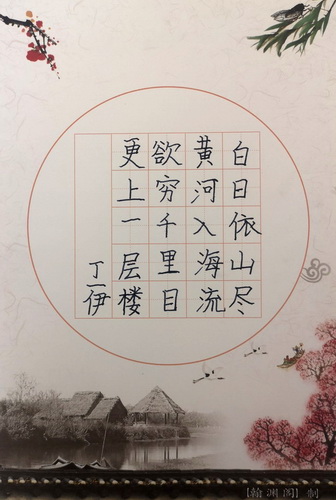 白日依山尽
黄河入海流
欲穷千里目
更上一层楼
丁一伊
【翰渊阁】制